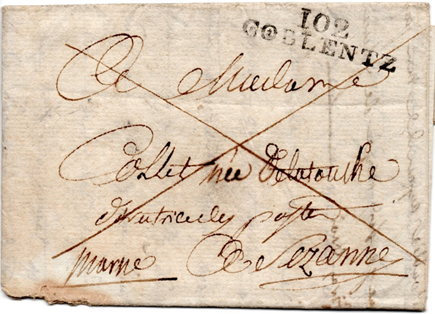 102
COBLENTZ
A Madame
Collet née Delatouche
poste
marne A Sezanne